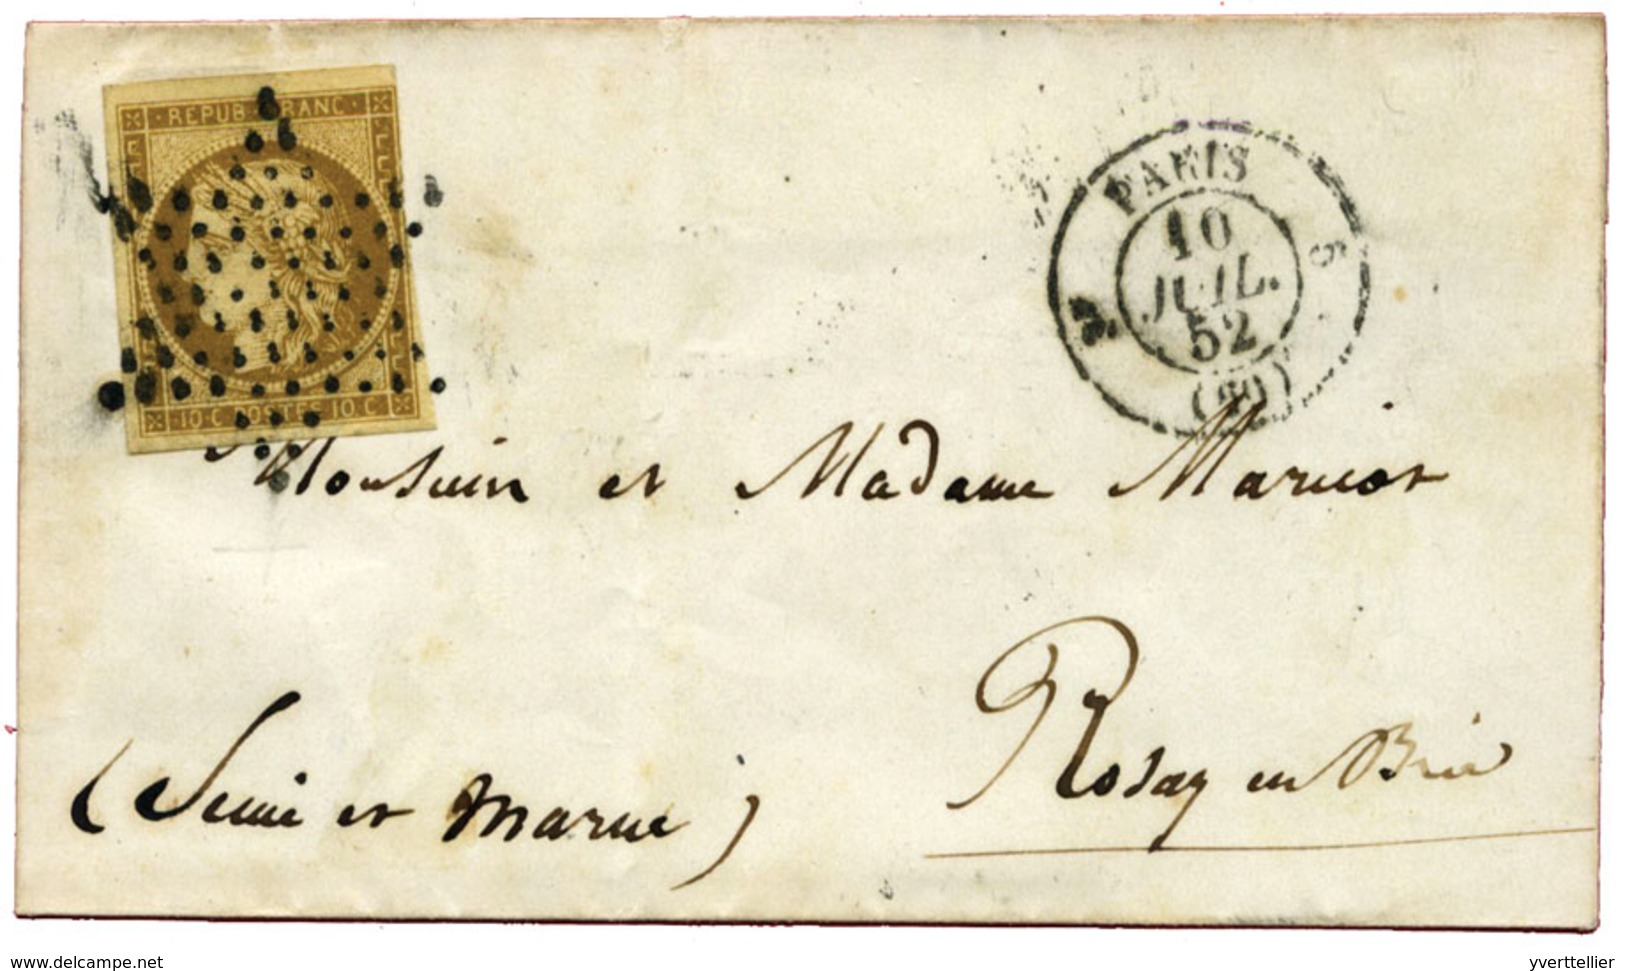 REPUB FRANC
10·C POSTES 10·C
PARIS
10
JUIL.
52
(60)
S
Monsieur et Madame Marcot
Rosay en Brie
(Seine et Marne)
www.delcampe.net
yverttellier